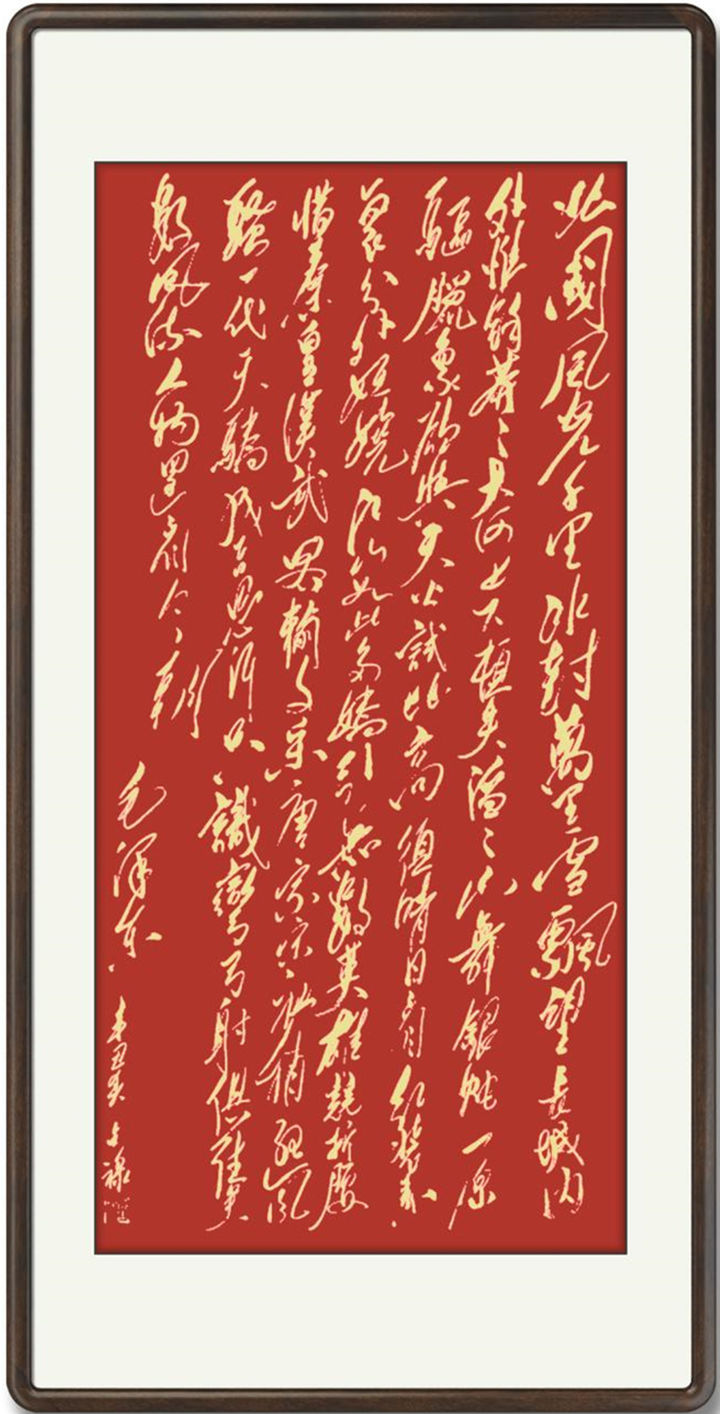 北國風光千里冰封萬里雪飄望長城内
外惟餘莽〻大河上下頓失滔〻山舞銀蛇一原
驅臘象欲與天公試比高須晴日看紅裝素
裹分外妖嬈江山如此多嬌引無數英雄競折腰
惜秦皇漢武畧輸文采唐宗宋祖稍遜風
騷一代天驕成吉思汗只識彎弓射俱往矣
數風流人物還看今朝
毛澤東